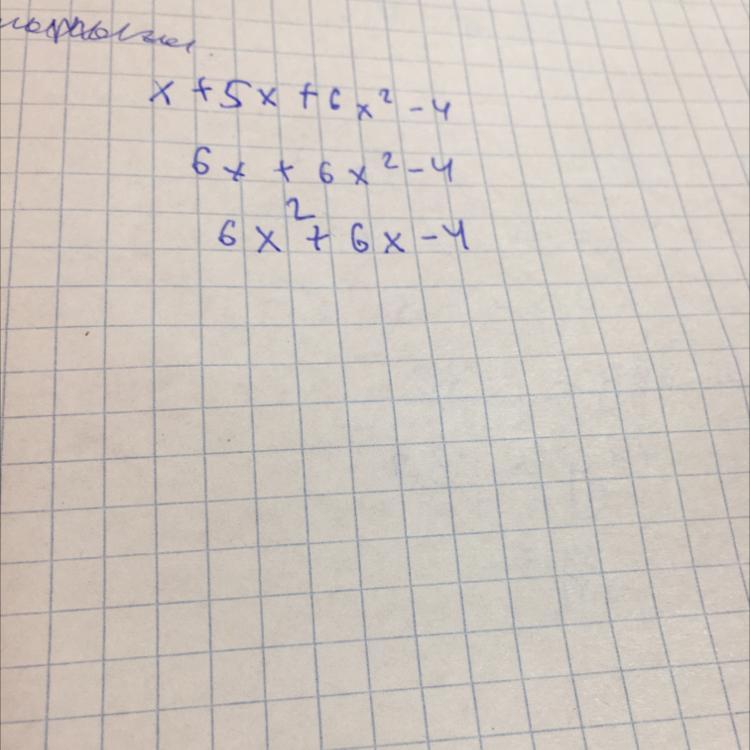 x + 5x + 6x² - 4
6x + 6x² - 4
6x² + 6x - 4